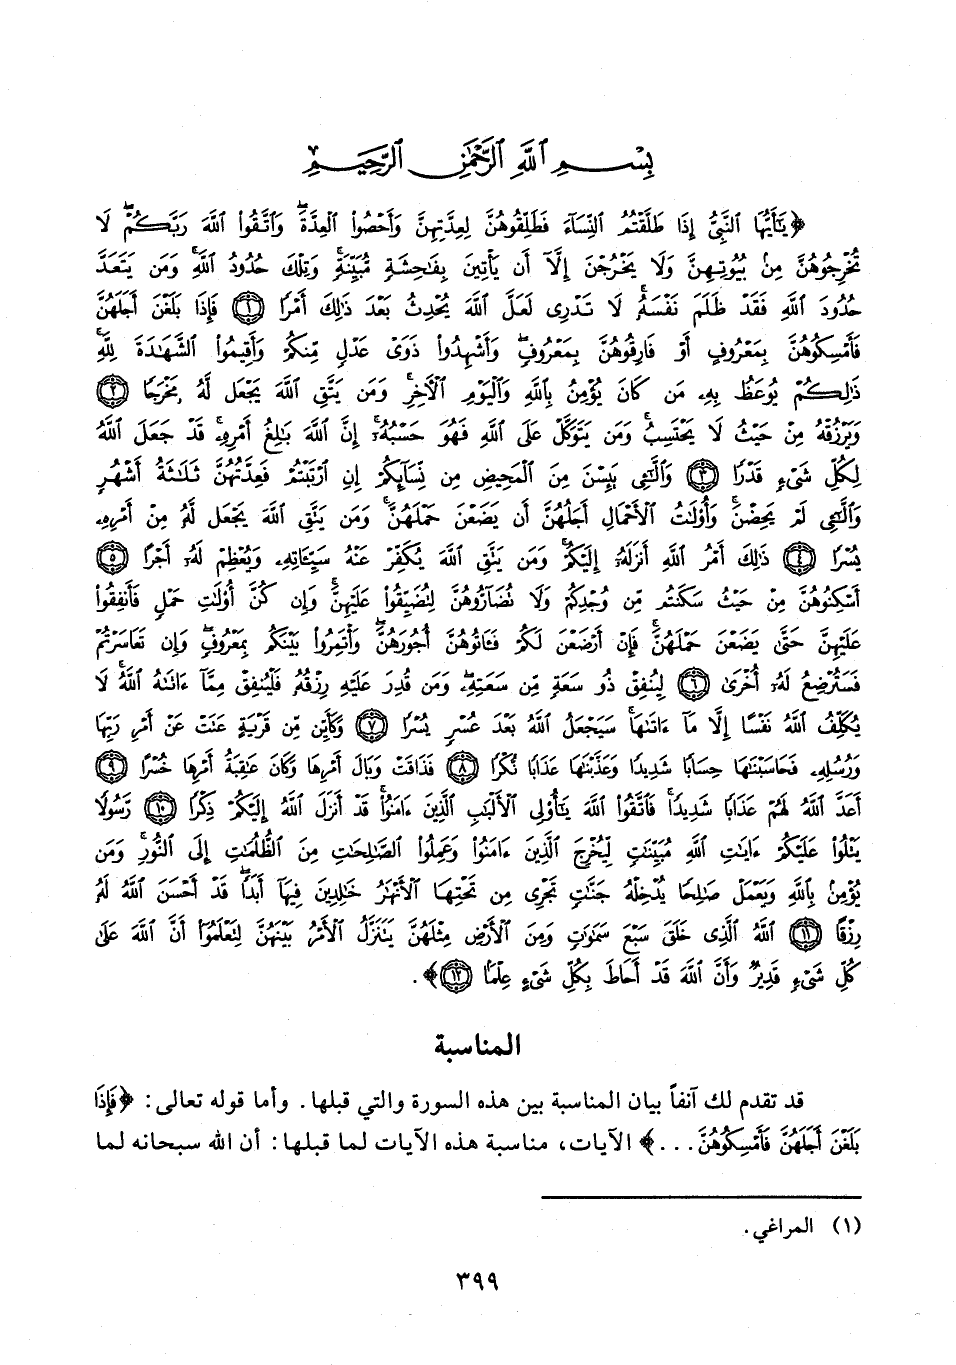 بِسْمِ اللَّهِ الرَّحْمَٰنِ الرَّحِيمِ
﴿يَٰٓأَيُّهَا ٱلنَّبِىُّ إِذَا طَلَّقْتُمُ ٱلنِّسَآءَ فَطَلِّقُوهُنَّ لِعِدَّتِهِنَّ وَأَحْصُوا۟ ٱلْعِدَّةَ ۖ وَٱتَّقُوا۟ ٱللَّهَ رَبَّكُمْ ۖ لَا
تُخْرِجُوهُنَّ مِنۢ بُيُوتِهِنَّ وَلَا يَخْرُجْنَ إِلَّآ أَن يَأْتِينَ بِفَٰحِشَةٍ مُّبَيِّنَةٍ ۚ وَتِلْكَ حُدُودُ ٱللَّهِ ۚ وَمَن يَتَعَدَّ
حُدُودَ ٱللَّهِ فَقَدْ ظَلَمَ نَفْسَهُۥ ۚ لَا تَدْرِى لَعَلَّ ٱللَّهَ يُحْدِثُ بَعْدَ ذَٰلِكَ أَمْرًا ﴿١﴾ فَإِذَا بَلَغْنَ أَجَلَهُنَّ
فَأَمْسِكُوهُنَّ بِمَعْرُوفٍ أَوْ فَارِقُوهُنَّ بِمَعْرُوفٍ وَأَشْهِدُوا۟ ذَوَىْ عَدْلٍ مِّنكُمْ وَأَقِيمُوا۟ ٱلشَّهَٰدَةَ لِلَّهِ ۚ
ذَٰلِكُمْ يُوعَظُ بِهِۦ مَن كَانَ يُؤْمِنُ بِٱللَّهِ وَٱلْيَوْمِ ٱلْءَاخِرِ ۚ وَمَن يَتَّقِ ٱللَّهَ يَجْعَل لَّهُۥ مَخْرَجًا ﴿٢﴾
وَيَرْزُقْهُ مِنْ حَيْثُ لَا يَحْتَسِبُ ۚ وَمَن يَتَوَكَّلْ عَلَى ٱللَّهِ فَهُوَ حَسْبُهُۥٓ ۚ إِنَّ ٱللَّهَ بَٰلِغُ أَمْرِهِۦ ۚ قَدْ جَعَلَ ٱللَّهُ
لِكُلِّ شَىْءٍ قَدْرًا ﴿٣﴾ وَٱلَّٰٓـِٔى يَئِسْنَ مِنَ ٱلْمَحِيضِ مِن نِّسَآئِكُمْ إِنِ ٱرْتَبْتُمْ فَعِدَّتُهُنَّ ثَلَٰثَةُ أَشْهُرٍ
وَٱلَّٰٓـِٔى لَمْ يَحِضْنَ ۚ وَأُو۟لَٰتُ ٱلْأَحْمَالِ أَجَلُهُنَّ أَن يَضَعْنَ حَمْلَهُنَّ ۚ وَمَن يَتَّقِ ٱللَّهَ يَجْعَل لَّهُۥ مِنْ أَمْرِهِۦ
يُسْرًا ﴿٤﴾ ذَٰلِكَ أَمْرُ ٱللَّهِ أَنزَلَهُۥٓ إِلَيْكُمْ ۚ وَمَن يَتَّقِ ٱللَّهَ يُكَفِّرْ عَنْهُ سَيِّـَٔاتِهِۦ وَيُعْظِمْ لَهُۥٓ أَجْرًا ﴿٥﴾
أَسْكِنُوهُنَّ مِنْ حَيْثُ سَكَنتُم مِّن وُجْدِكُمْ وَلَا تُضَآرُّوهُنَّ لِتُضَيِّقُوا۟ عَلَيْهِنَّ ۚ وَإِن كُنَّ أُو۟لَٰتِ حَمْلٍ فَأَنفِقُوا۟
عَلَيْهِنَّ حَتَّىٰ يَضَعْنَ حَمْلَهُنَّ ۚ فَإِنْ أَرْضَعْنَ لَكُمْ فَـَٔاتُوهُنَّ أُجُورَهُنَّ ۖ وَأْتَمِرُوا۟ بَيْنَكُم بِمَعْرُوفٍ ۖ وَإِن تَعَاسَرْتُمْ
فَسَتُرْضِعُ لَهُۥٓ أُخْرَىٰ ﴿٦﴾ لِيُنفِقْ ذُو سَعَةٍ مِّن سَعَتِهِۦ ۖ وَمَن قُدِرَ عَلَيْهِ رِزْقُهُۥ فَلْيُنفِقْ مِمَّآ ءَاتَىٰهُ ٱللَّهُ ۚ لَا
يُكَلِّفُ ٱللَّهُ نَفْسًا إِلَّا مَآ ءَاتَىٰهَا ۚ سَيَجْعَلُ ٱللَّهُ بَعْدَ عُسْرٍ يُسْرًا ﴿٧﴾ وَكَأَيِّن مِّن قَرْيَةٍ عَتَتْ عَنْ أَمْرِ رَبِّهَا
وَرُسُلِهِۦ فَحَاسَبْنَٰهَا حِسَابًا شَدِيدًا وَعَذَّبْنَٰهَا عَذَابًا نُّكْرًا ﴿٨﴾ فَذَاقَتْ وَبَالَ أَمْرِهَا وَكَانَ عَٰقِبَةُ أَمْرِهَا خُسْرًا ﴿٩﴾
أَعَدَّ ٱللَّهُ لَهُمْ عَذَابًا شَدِيدًا ۖ فَٱتَّقُوا۟ ٱللَّهَ يَٰٓأُو۟لِى ٱلْأَلْبَٰبِ ٱلَّذِينَ ءَامَنُوا۟ ۚ قَدْ أَنزَلَ ٱللَّهُ إِلَيْكُمْ ذِكْرًا ﴿١٠﴾ رَّسُولًا
يَتْلُوا۟ عَلَيْكُمْ ءَايَٰتِ ٱللَّهِ مُبَيِّنَٰتٍ لِّيُخْرِجَ ٱلَّذِينَ ءَامَنُوا۟ وَعَمِلُوا۟ ٱلصَّٰلِحَٰتِ مِنَ ٱلظُّلُمَٰتِ إِلَى ٱلنُّورِ ۚ وَمَن
يُؤْمِنۢ بِٱللَّهِ وَيَعْمَلْ صَٰلِحًا يُدْخِلْهُ جَنَّٰتٍ تَجْرِى مِن تَحْتِهَا ٱلْأَنْهَٰرُ خَٰلِدِينَ فِيهَآ أَبَدًا ۖ قَدْ أَحْسَنَ ٱللَّهُ لَهُۥ
رِزْقًا ﴿١١﴾ ٱللَّهُ ٱلَّذِى خَلَقَ سَبْعَ سَمَٰوَٰتٍ وَمِنَ ٱلْأَرْضِ مِثْلَهُنَّ يَتَنَزَّلُ ٱلْأَمْرُ بَيْنَهُنَّ لِتَعْلَمُوٓا۟ أَنَّ ٱللَّهَ عَلَىٰ
كُلِّ شَىْءٍ قَدِيرٌ وَأَنَّ ٱللَّهَ قَدْ أَحَاطَ بِكُلِّ شَىْءٍ عِلْمًۢا ﴿١٢﴾﴾.
المناسبة
قد تقدم لك آنفاً بيان المناسبة بين هذه السورة والتي قبلها. وأما قوله تعالى: ﴿فَإِذَا
بَلَغْنَ أَجَلَهُنَّ فَأَمْسِكُوهُنَّ...﴾ الآيات، مناسبة هذه الآيات لما قبلها: أن الله سبحانه لما
(١) المراغي.
٣٩٩